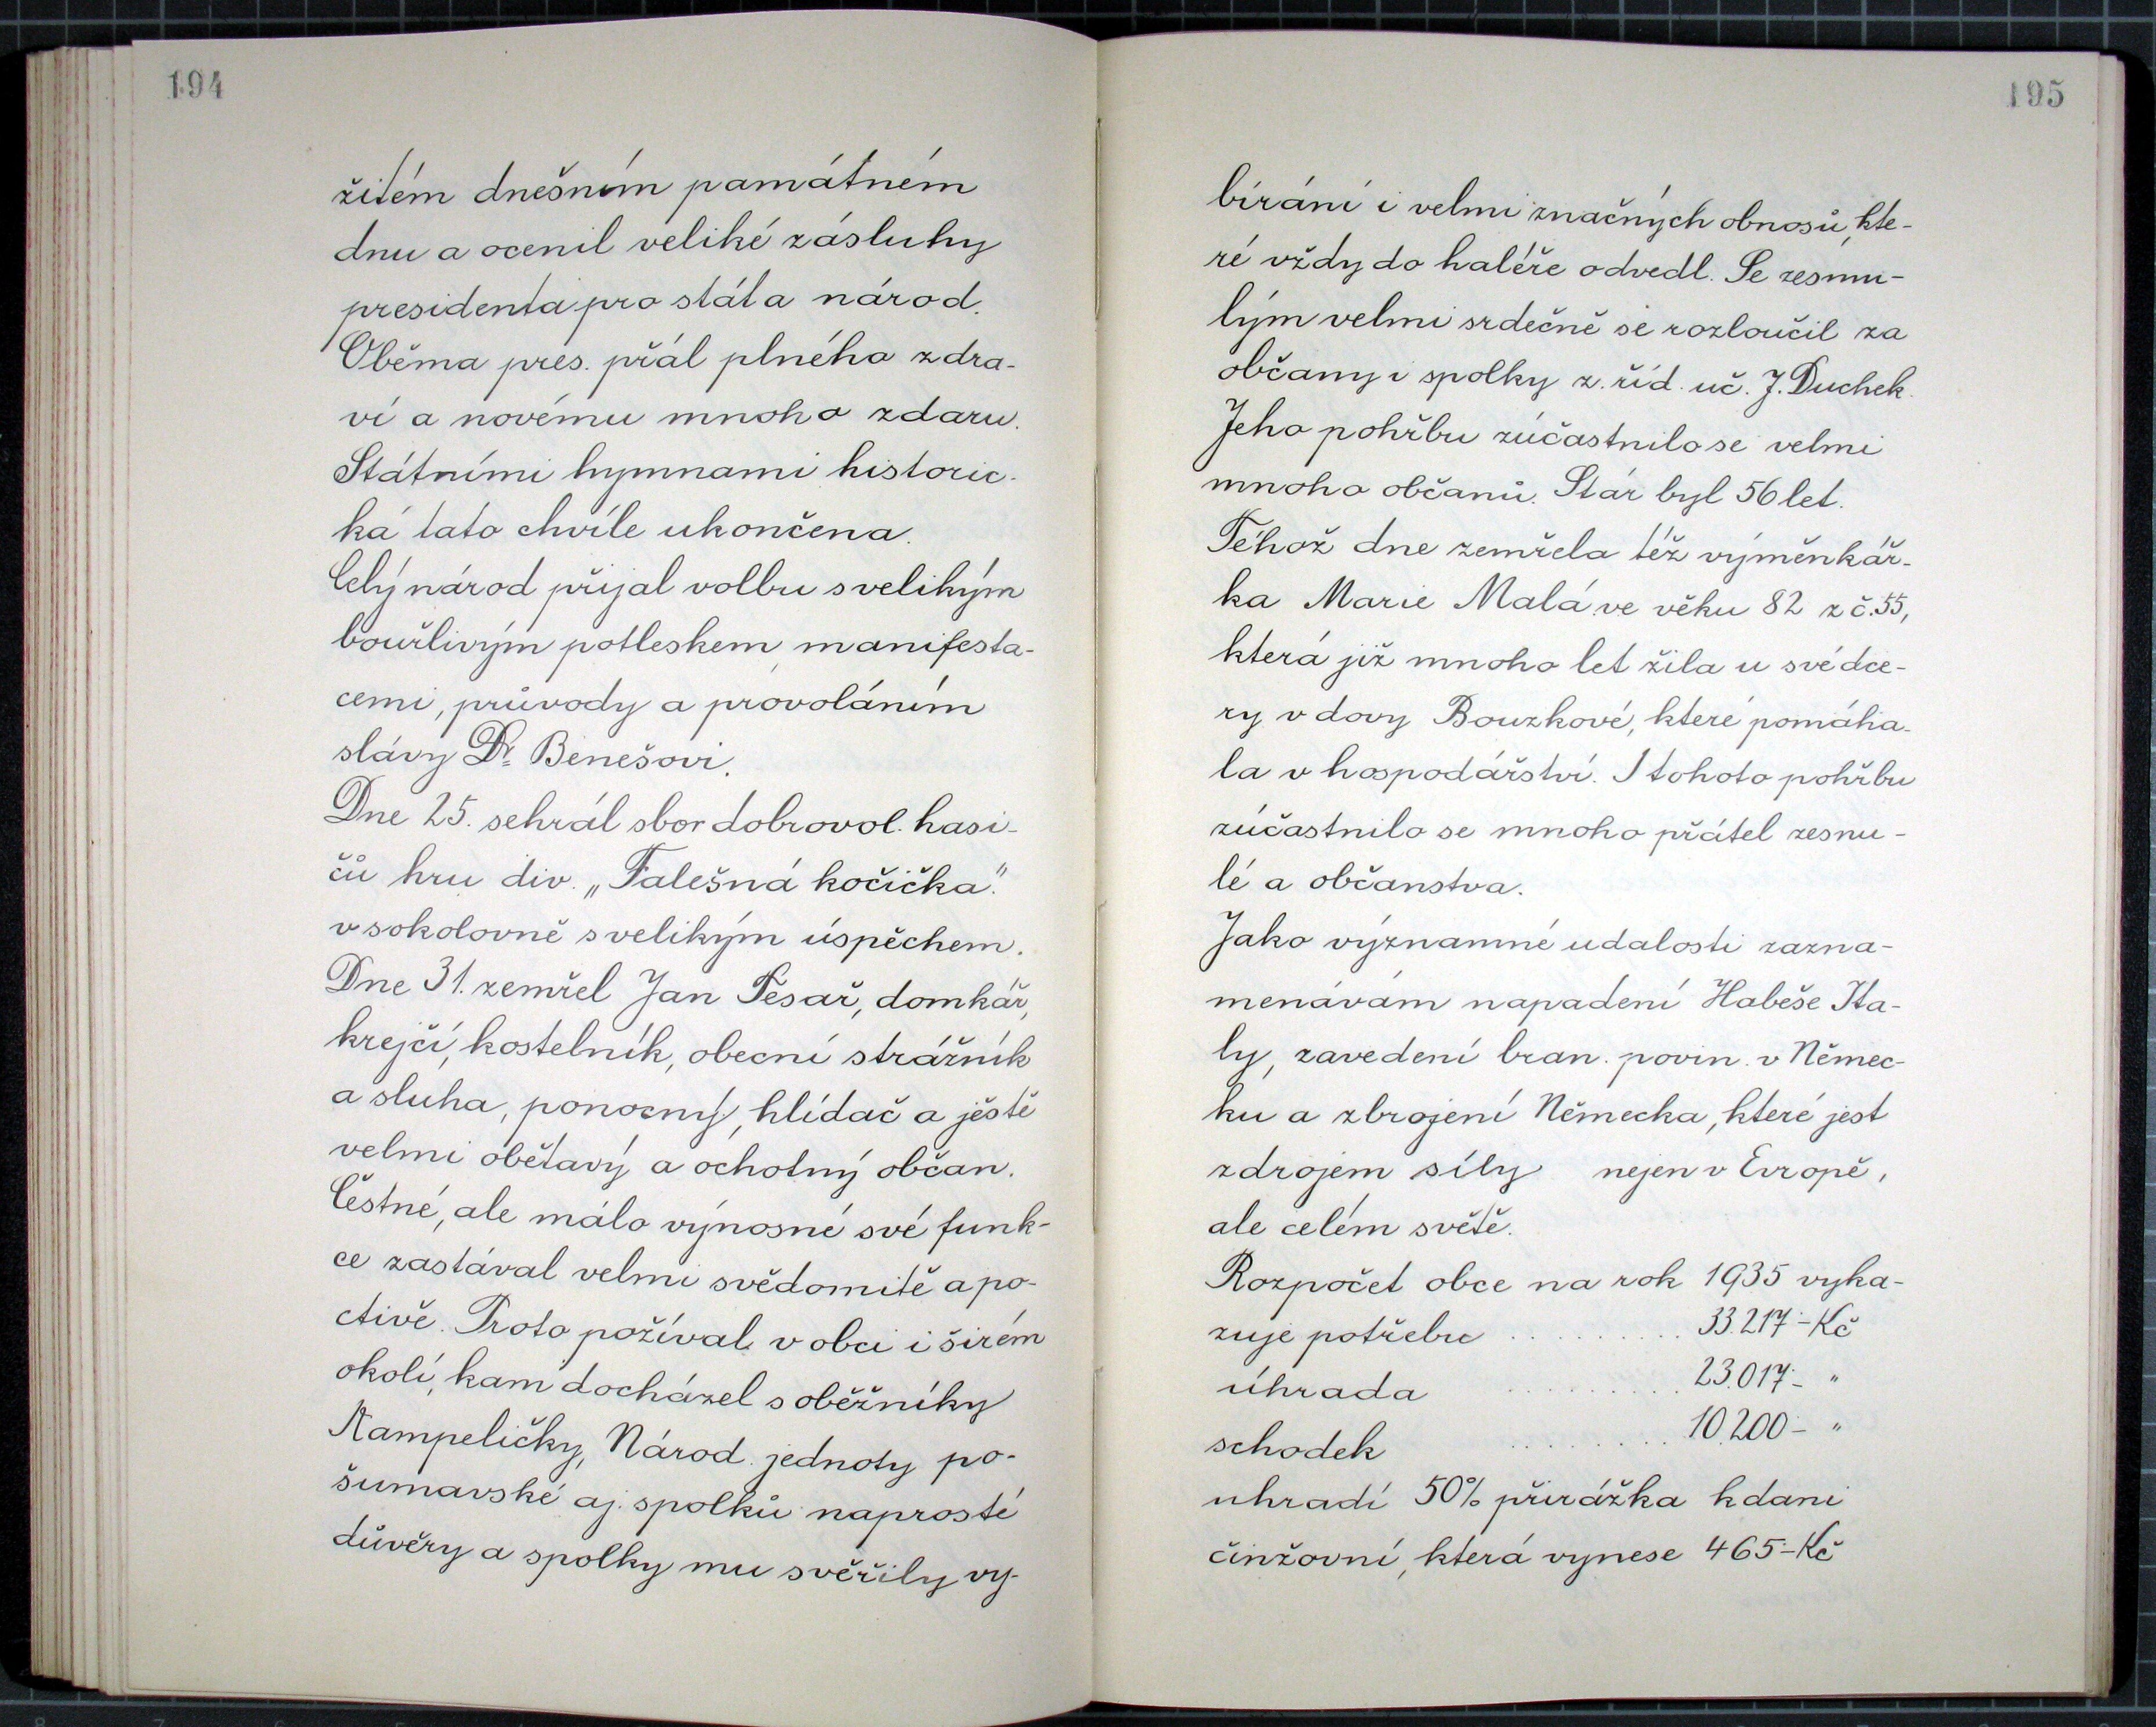 194
žitém dnešním památném
dnu a ocenil veliké zásluhy
presidenta pro stát a národ.
Oběma pres. přál plného zdra-
ví a novému mnoho zdaru.
Státními hymnami historic-
ká tato chvíle ukončena.
Celý národ přijal volbu s velikým
bouřlivým potleskem, manifesta-
cemi, průvody a provoláním
slávy Dr. Benešovi.
Dne 25. sehrál sbor dobrovol. hasi-
čů hru div. „Falešná kočička"
v sokolovně s velikým úspěchem.
Dne 31. zemřel Jan Tesař, domkář,
krejčí, kostelník, obecní strážník
a sluha, ponocný, hlídač a jěště
velmi obětavý a ochotný občan.
Čestné, ale málo výnosné své funk-
ce zastával velmi svědomitě a po-
ctivě. Proto požíval v obci i širém
okolí, kam docházel s oběžníky
Kampeličky, Národ. jednoty po-
šumavské aj. spolků naprosté
důvěry a spolky mu svěřily vy-
195
bírání i velmi značných obnosů, kte-
ré vždy do haléře odvedl. Se zesnu-
lým velmi srdečně se rozloučil za
občany i spolky z. říd. uč. J. Duchek.
Jeho pohřbu zúčastnilo se velmi
mnoho občanů. Stár byl 56 let.
Téhož dne zemřela též výměnkář-
ka Marie Malá ve věku 82 z č. 55,
která již mnoho let žila u své dce-
ry vdovy Bouzkové, které pomáha-
la v hospodářství. I tohoto pohřbu
zúčastnilo se mnoho přátel zesnu-
lé a občanstva.
Jako významné udalosti zazna-
menávám napadení Habeše Ita-
ly, zavedení bran. povin. v Němec-
ku a zbrojení Německa, které jest
zdrojem síly nejen v Evropě,
ale celém světě.
Rozpočet obce na rok 1935 vyka-
zuje potřebu . . . . . . . . . 33.217·- Kč
úhrada . . . . . . . . . 23.017·- "
schodek . . . . . . . . 10.200·- "
uhradí 50% přirážka k dani
činžovní, která vynese 465·- Kč